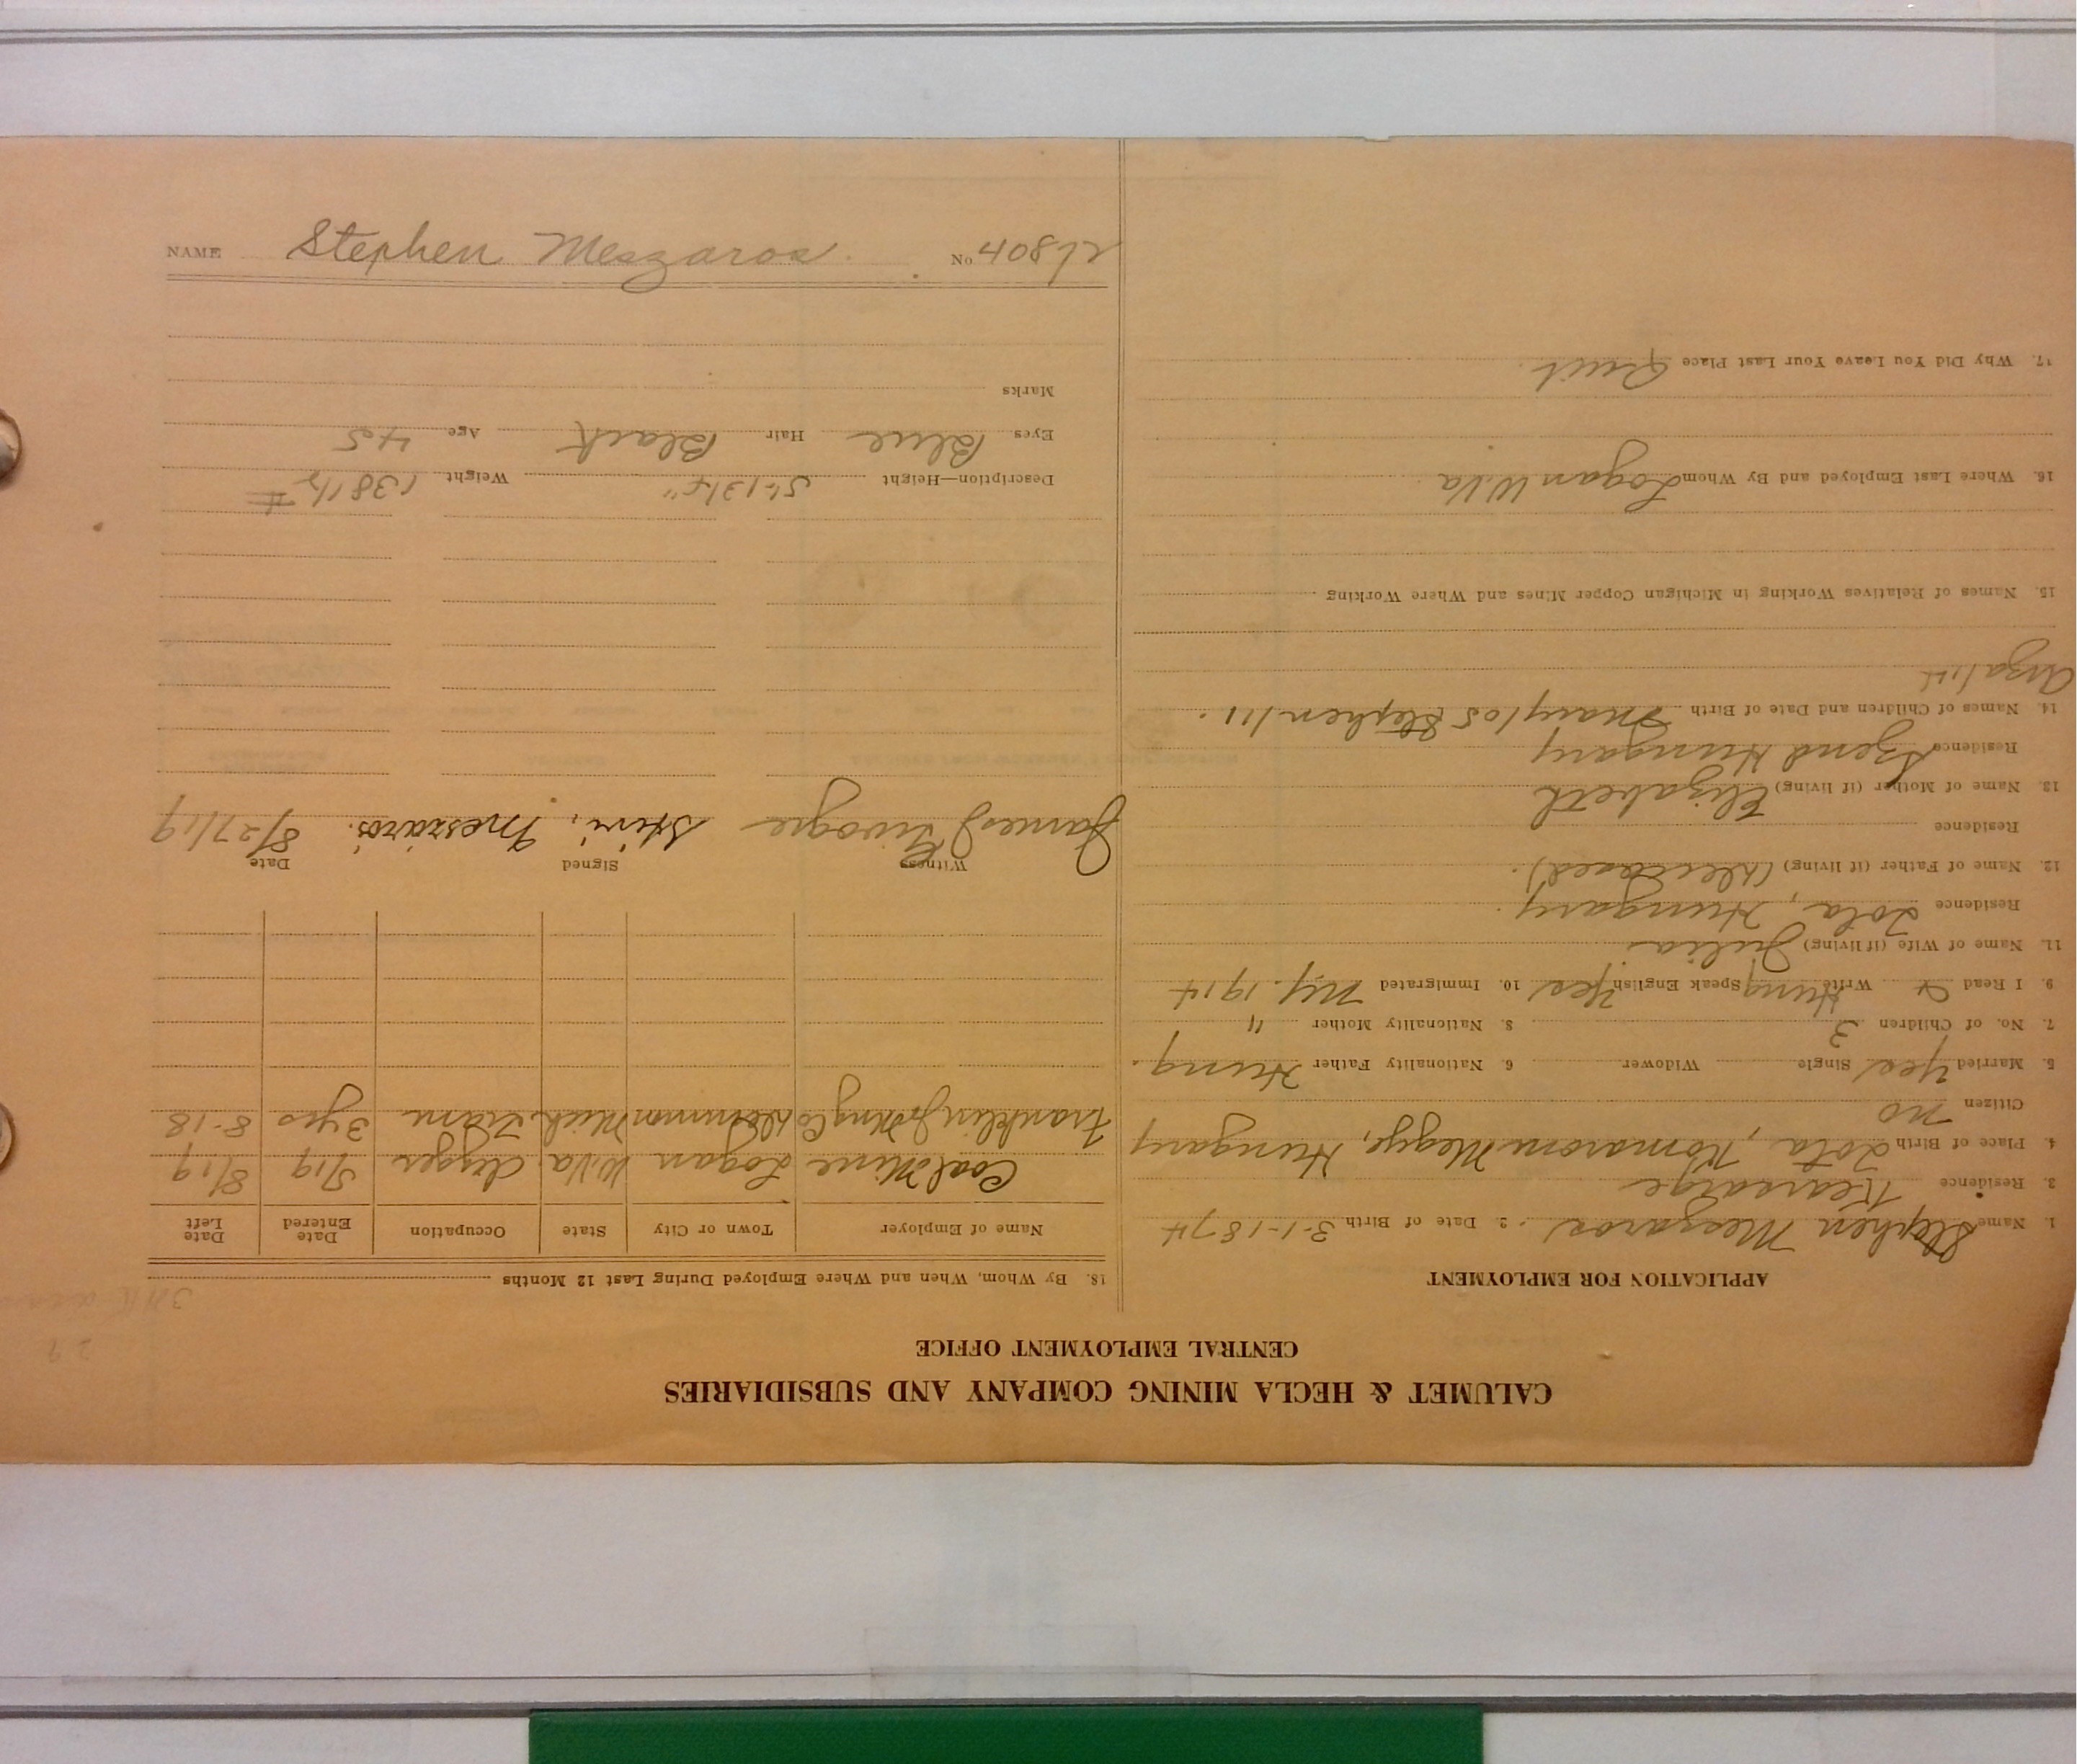 CALUMET & HECLA MINING COMPANY AND SUBSIDIARIES
CENTRAL EMPLOYMENT OFFICE
APPLICATION FOR EMPLOYMENT
1. Name Stephen Meszaros. 2. Date of Birth 3-1-1874
3. Residence Kearsarge
4. Place of Birth Zota, Komarom Megye, Hungary
Citizen no
5. Married Yes Single Widower 6. Nationality Father Hung.
7. No. of Children 3 8. Nationality Mother "
9. I Read & Write Hung Speak English Yes 10. Immigrated NY. 1914
11. Name of Wife (if living) Julia
Residence Zota, Hungary.
12. Name of Father (if living) (Deceased).
Residence
13. Name of Mother (if living) Elizabeth
Residence Szend Hungary
14. Names of Children and Date of Birth Mary/05 Stephen/11.
/14
15. Names of Relatives Working in Michigan Copper Mines and Where Working
16. Where Last Employed and By Whom Logan W.Va
17. Why Did You Leave Your Last Place Quit.
18. By Whom, When and Where Employed During Last 12 Months
Name of Employer Town or City State Occupation Date Entered Date Left
Coal Mine Logan W.Va. Digger 5/19 8/19
Franklin Jr Mng Co Mich Tram 3 yrs 8-18
Witness Signed Date
James J Mészáros. 8/27/19
Description—Height 5'-1 3/4" Weight 138 1/2 #
Eyes Blue Hair Black Age 45
Marks
NAME Stephen Meszaros. No
29